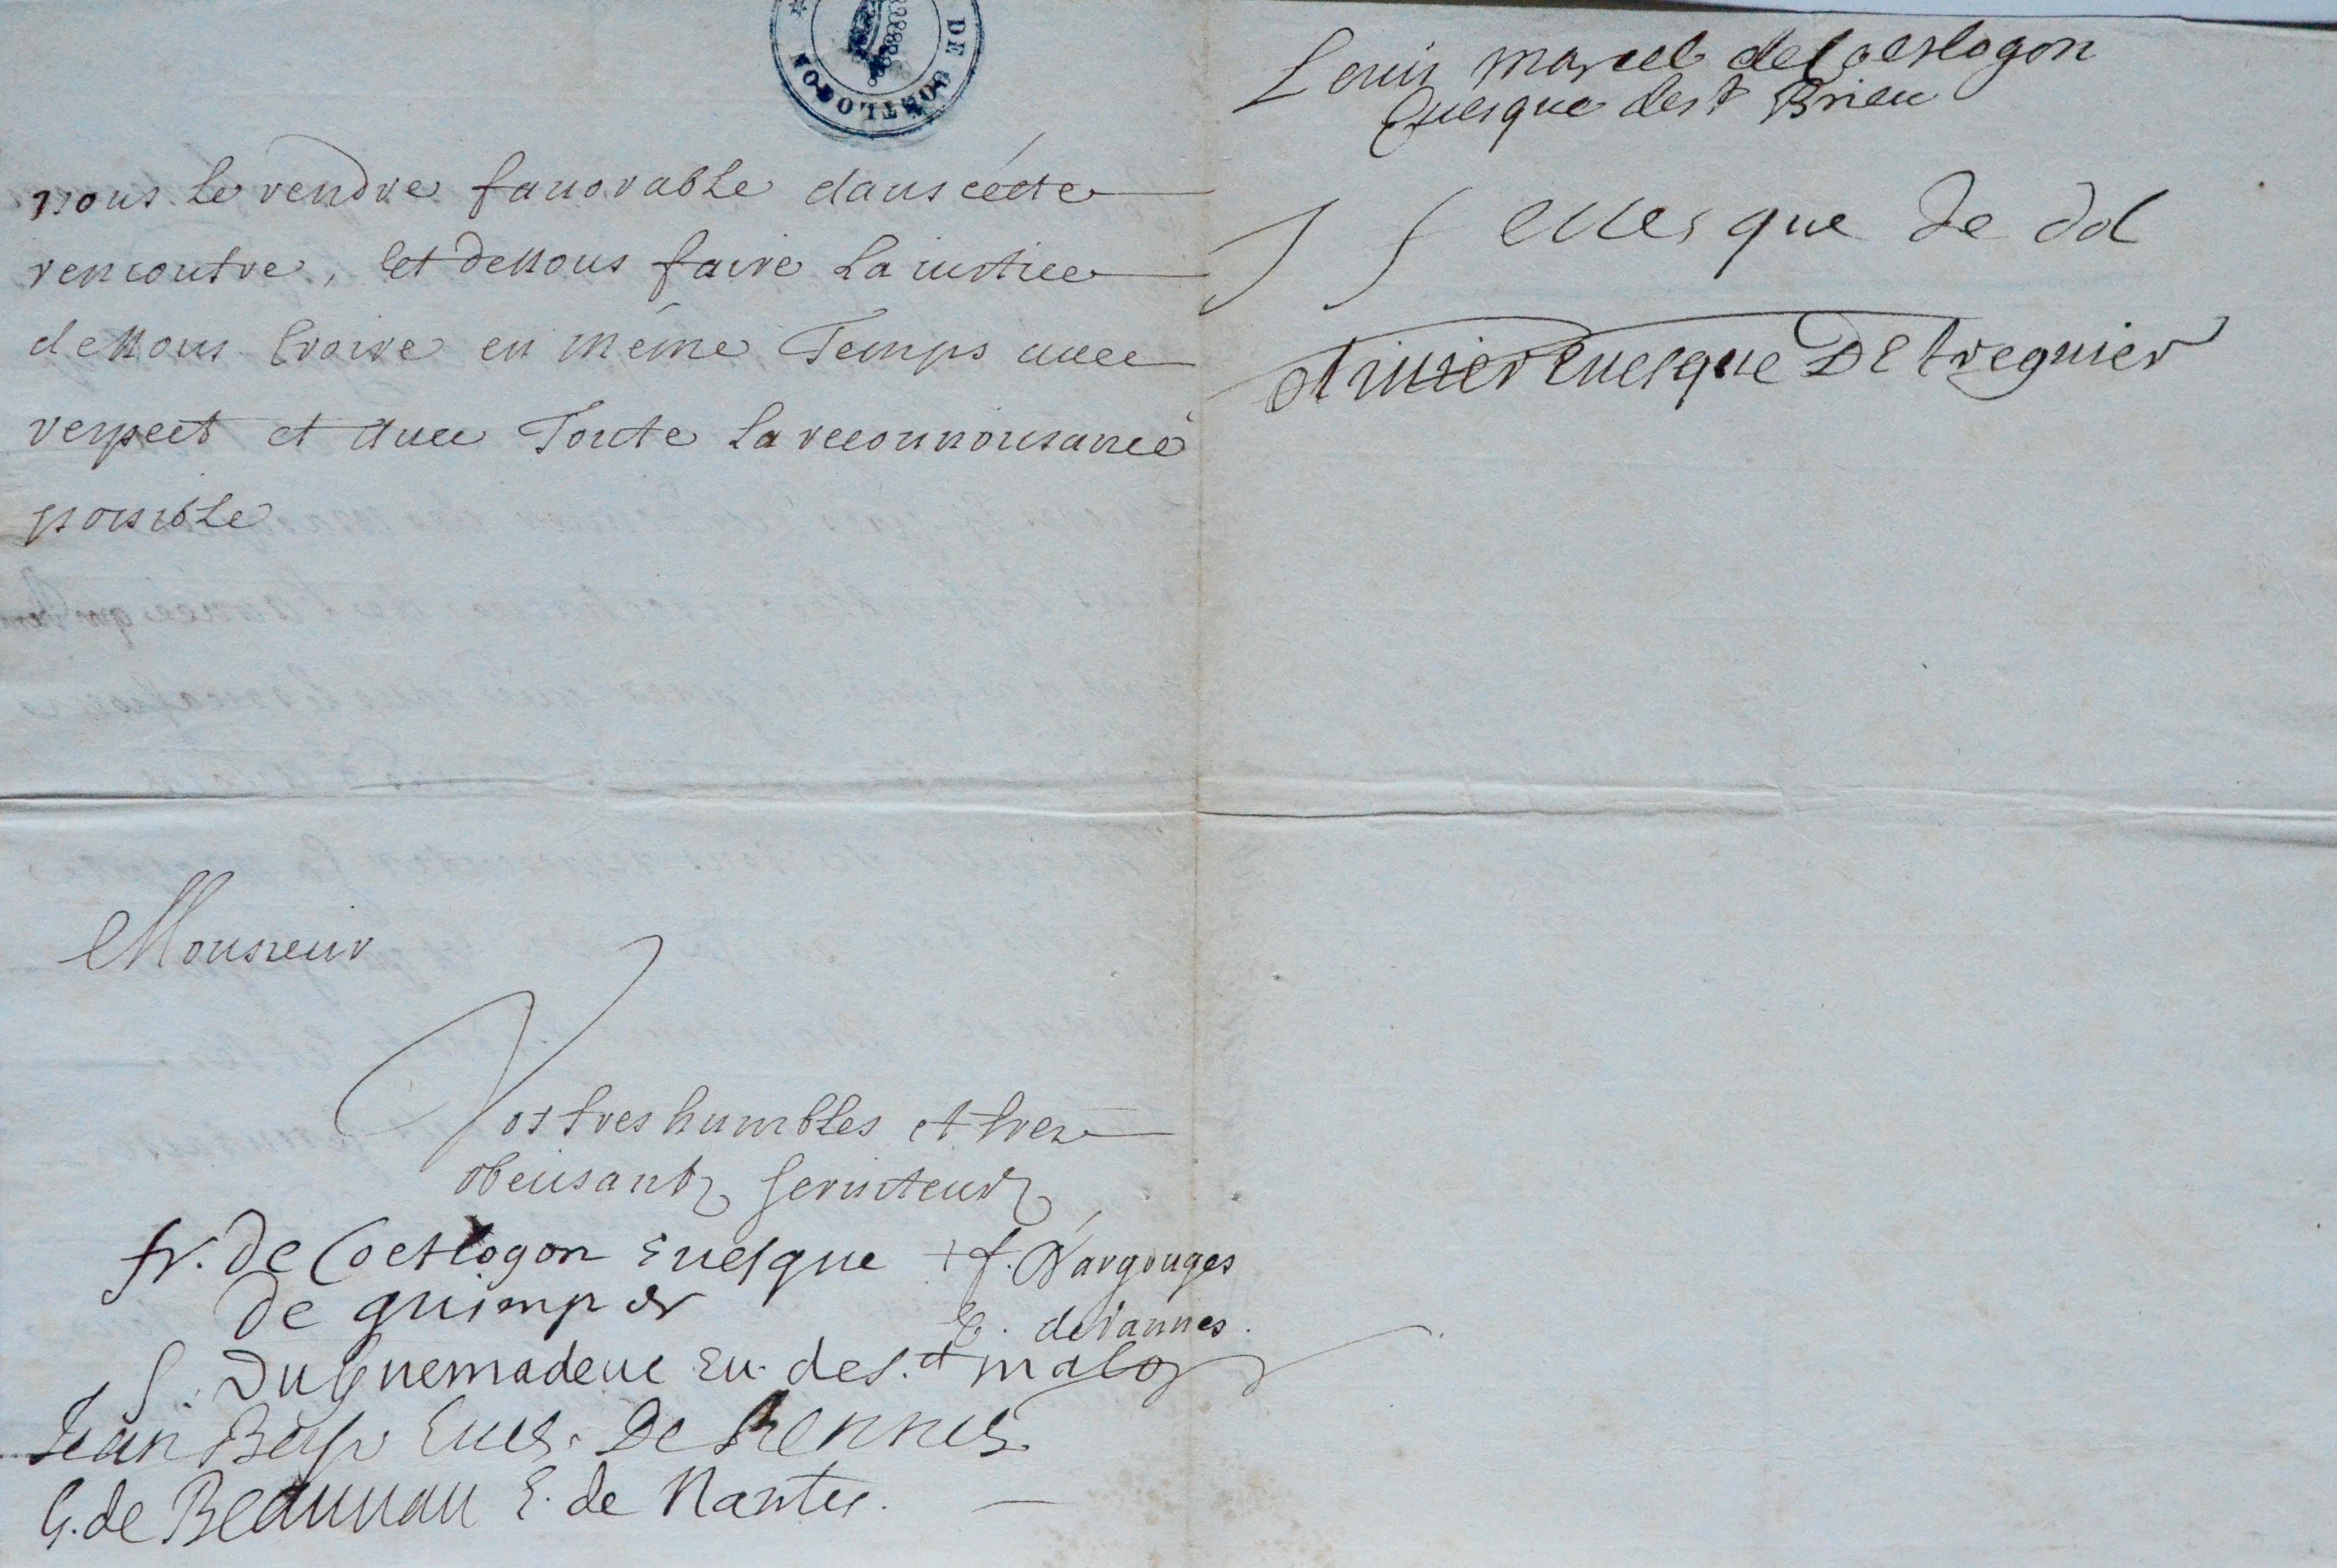 DE COETLOGON
nous le rendre fauorable dans cette
rencontre, et de nous faire la iustice
de nous croire en méme Temps auec
respect et auec Toute la reconnoissance
possible
Monsieur
Vos tres humbles et tres
obeissants seruiteurs
fr. De Coetlogon Euesque
De quimper
f. D'argouges
E. de Vannes.
S. Du Guemadeuc Eu. de s.t malo
Jean Bap Eues. De Rennes
G. de Beauuau E. de Nantes.
Louis marcel de Coetlogon
Euesque de st Brieu
euesque de dol
Oliuier Euesque De treguier